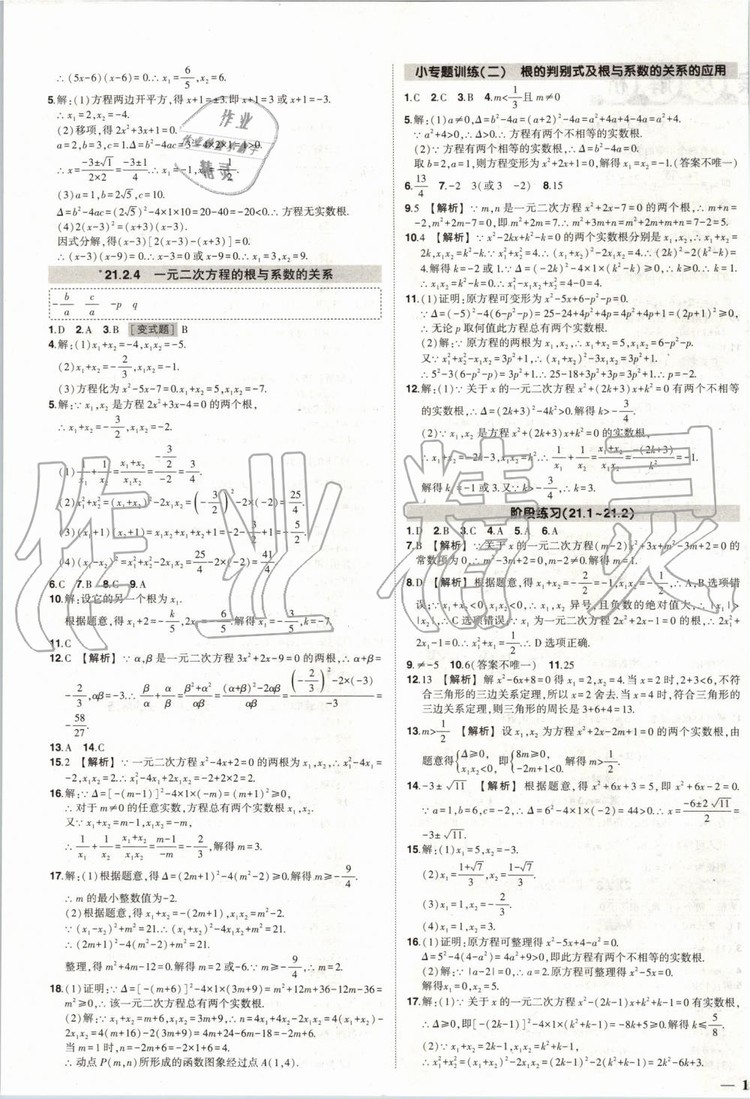 ∴(5x-6)(x-6)=0.∴x₁=6/5,x₂=6.
5.解:(1)方程两边开平方,得x+1=±3.即x+1=3或x+1=-3.
∴x₁=2,x₂=-4.
(2)移项,得2x²+3x+1=0.
(3)a=1,b=2√5,c=10.
Δ=b²-4ac=(2√5)²-4×1×10=20-40=-20<0.∴方程无实数根.
(4)2(x-3)²=(x+3)(x-3).
因式分解,得(x-3)[2(x-3)-(x+3)]=0.
∴(x-3)(x-9)=0.∴x-3=0或x-9=0.∴x₁=3,x₂=9.
*21.2.4 一元二次方程的根与系数的关系
-b/a c/a -p q
1.D 2.A 3.B [变式题] B
4.解:(1)x₁+x₂=-4,x₁x₂=-5.
(2)x₁+x₂=-2/3,x₁x₂=-2/3.
(3)方程化为x²-5x-7=0.x₁+x₂=5,x₁x₂=-7.
5.解:∵x₁,x₂是方程2x²+3x-4=0的两个根,
∴x₁+x₂=-3/2,x₁x₂=-2.
(1)1/x₁+1/x₂=(x₁+x₂)/(x₁x₂)=(-3/2)/(-2)=3/4.
(2)x₁²+x₂²=(x₁+x₂)²-2x₁x₂=(-3/2)²-2×(-2)=25/4.
6.C 7.B 8.C 9.A
10.解:设它的另一个根为x₁.
11.C
12.C 【解析】∵α,β是一元二次方程3x²+2x-9=0的两根,∴α+β=
-2/3,αβ=-3.∴β/α+α/β=(β²+α²)/αβ=((α+β)²-2αβ)/αβ=((-2/3)²-2×(-3))/(-3)=
-58/27.
13.A 14.C
15.2 【解析】∵一元二次方程x²-4x+2=0的两根为x₁,x₂,∴x₁²-4x₁=
-2,x₁x₂=2.∴x₁²-4x₁+2x₁x₂=-2+2×2=2.
16.解:∵Δ=[-(m-1)]²-4×1×(-m)=(m+1)²≥0,
∴对于m≠0的任意实数,方程总有两个实数根x₁,x₂.
又∵x₁+x₂=m-1,x₁x₂=-m,
∴1/x₁+1/x₂=(x₁+x₂)/(x₁x₂)=(m-1)/(-m)=-2/3,解得m=3.
17.解:(1)根据题意,得Δ=(2m+1)²-4(m²-2)≥0.解得m≥-9/4.
∴m的最小整数值为-2.
(2)根据题意,得x₁+x₂=-(2m+1),x₁x₂=m²-2.
∵(x₁-x₂)²+m²=21,∴(x₁+x₂)²-4x₁x₂+m²=21.
∴(2m+1)²-4(m²-2)+m²=21.
整理,得m²+4m-12=0.解得m=2或-6.∵m≥-9/4,∴m=2.
18.解:(1)∵Δ=[-(m+6)]²-4×1×(3m+9)=m²+12m+36-12m-36=
m²≥0,∴该一元二次方程总有两个实数根.
(2)解:∵x₁+x₂=m+6,x₁x₂=3m+9,∴n=4x₁+4x₂-2x₁x₂=4(x₁+x₂)-
2x₁x₂=4(m+6)-2(3m+9)=4m+24-6m-18=-2m+6.
当m=1时,n=-2m+6=-2×1+6=4.
∴动点P(m,n)所形成的函数图象经过点A(1,4).
小专题训练(二) 根的判别式及根与系数的关系的应用
1.C 2.C 3.B 4.m<1/3且m≠0
5.解:(1)a≠0,Δ=b²-4a=(a+2)²-4a=a²+4a+4-4a=a²+4.
∵a²+4>0,∴Δ>0.∴方程有两个不相等的实数根.
(2)∵方程有两个相等的实数根,∴Δ=b²-4a=0.
取b=2,a=1,则方程变形为x²+2x+1=0.解得x₁=x₂=-1.(答案不唯一)
6.13/4 7.-2 3(或3 -2) 8.15
9.5 【解析】∵m,n是一元二次方程x²+2x-7=0的两个根,∴m+n=
-2,m²+2m-7=0.即m²+2m=7.∴m²+3m+n=m²+2m+m+n=7-2=5.
10.4 【解析】∵x²-2kx+k²-k=0的两个实数根分别是x₁,x₂,∴x₁+x₂=
2k,x₁x₂=k²-k.∵x₁²+x₂²=4,∴(x₁+x₂)²-2x₁x₂=4.∴(2k)²-2(k²-k)
=4.解得k=-2或1.∵Δ=(-2k)²-4×1×(k²-k)≥0,∴k≥0.∴k=
1.∴x₁x₂=k²-k=0.∴x₁²-x₁x₂+x₂²=4-0=4.
11.(1)证明:原方程可变形为x²-5x+6-p²-p=0.
∵Δ=(-5)²-4(6-p²-p)=25-24+4p²+4p=4p²+4p+1=(2p+1)²≥0,
∴无论p取何值此方程总有两个实数根.
(2)解:∵原方程的两根为x₁,x₂,∴x₁+x₂=5,x₁x₂=6-p²-p.
又∵x₁²+x₂²-x₁x₂=3p²+1,∴(x₁+x₂)²-3x₁x₂=3p²+1.
∴5²-3(6-p²-p)=3p²+1.∴25-18+3p²+3p=3p²+1.∴p=-2.
12.解:(1)∵关于x的一元二次方程x²+(2k+3)x+k²=0有两个不相等
的实数根,∴Δ=(2k+3)²-4k²>0.解得k>-3/4.
(2)∵x₁,x₂是方程x²+(2k+3)x+k²=0的实数根,
∴x₁+x₂=-2k-3,x₁x₂=k².∴1/x₁+1/x₂=(x₁+x₂)/(x₁x₂)=-(2k+3)/k²=-1.
解得k₁=-1或3.又∵k>-3/4,∴k=3.
阶段练习(21.1~21.2)
7.B 【解析】∵关于x的一元二次方程(m-2)x²+3x+m²-3m+2=0的
常数项为0,∴m-2≠0,m²-3m+2=0.解得m=1.
9.≠-5 10.6(答案不唯一) 11.25
12.13 【解析】解x²-6x+8=0得x₁=2,x₂=4.当x=2时,2+3<6,不符
合三角形的三边关系定理,所以x=2舍去.当x=4时,符合三角形的
三边关系定理,则三角形的周长是3+6+4=13.
13.m>1/2 【解析】设x₁,x₂为方程x²+2x-2m+1=0的两个实数根,由
题意得{Δ≥0, x₁x₂<0,即{8m≥0, -2m+1<0.解得m>1/2.
14.-3±√11 【解析】根据题意,得x²+6x+3=5,即x²+6x-2=0.
∵a=1,b=6,c=-2,∴Δ=6²-4×1×(-2)=44>0.∴x=(-6±2√11)/2=
-3±√11.
15.解:(1)x₁=5,x₂=-3.
(2)x₁=(1+√7)/3,x₂=(1-√7)/3.
(4)x₁=4,x₂=3.
16.(1)证明:原方程可整理得x²-5x+4-a²=0.
Δ=5²-4(4-a²)=4a²+9>0,即此方程有两个不相等的实数根.
(2)解:∵|a-2|=0,∴a=2.原方程可整理得x²-5x=0.
解得x₁=0,x₂=5.
17.解:(1)∵关于x的一元二次方程x²-(2k-1)x+k²+k-1=0有实数根,
∴Δ≥0,即[-(2k-1)]²-4×1×(k²+k-1)=-8k+5≥0.解得k≤5/8.
(2)由根与系数的关系可得x₁+x₂=2k-1,x₁x₂=k²+k-1,
∴x₁²+x₂²=(x₁+x₂)²-2x₁x₂=(2k-1)²-2(k²+k-1)=2k²-6k+3.
作业精灵